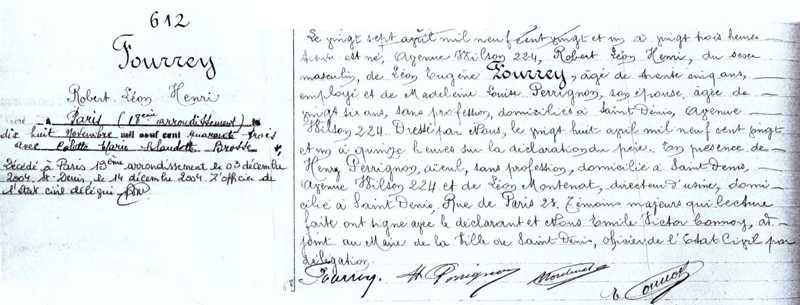 612
Fourrey
Robert Léon Henri
à Paris (18eme arrondissement) le
dix huit Novembre mil neuf cent quarante trois
avec Colette Marie Claudette Brosse
Décédé à Paris 13ème arrondissement le 03 décembre
2004. St Denis, le 14 décembre 2004. L'officier de
l'état civil délégué
Le vingt sept avril mil neuf cent vingt et un à vingt trois heures
trente est né, Avenue Wilson 224, Robert Léon Henri, du sexe
masculin, de Léon Eugène Fourrey, âgé de trente cinq ans,
employé et de Madeleine Louise Perrignon, son épouse, âgée de
vingt six ans, sans profession, domiciliés à Saint Denis, Avenue
Wilson 224. Dressé par Nous, le vingt huit avril mil neuf cent vingt
et un à quinze heures sur la déclaration du père. En présence de
Henry Perrignon, aïeul, sans profession, domicilié à Saint Denis,
Avenue Wilson 224 et de Léon Montenat, directeur d'usine, domi-
cilié à Saint Denis, Rue de Paris 23. Témoins majeurs qui lecture
faite ont signé avec le déclarant et Nous Emile Victor Connoy, ad-
joint au Maire de la Ville de Saint Denis, officier de l'Etat Civil par
délégation.
Fourrey H Perrignon